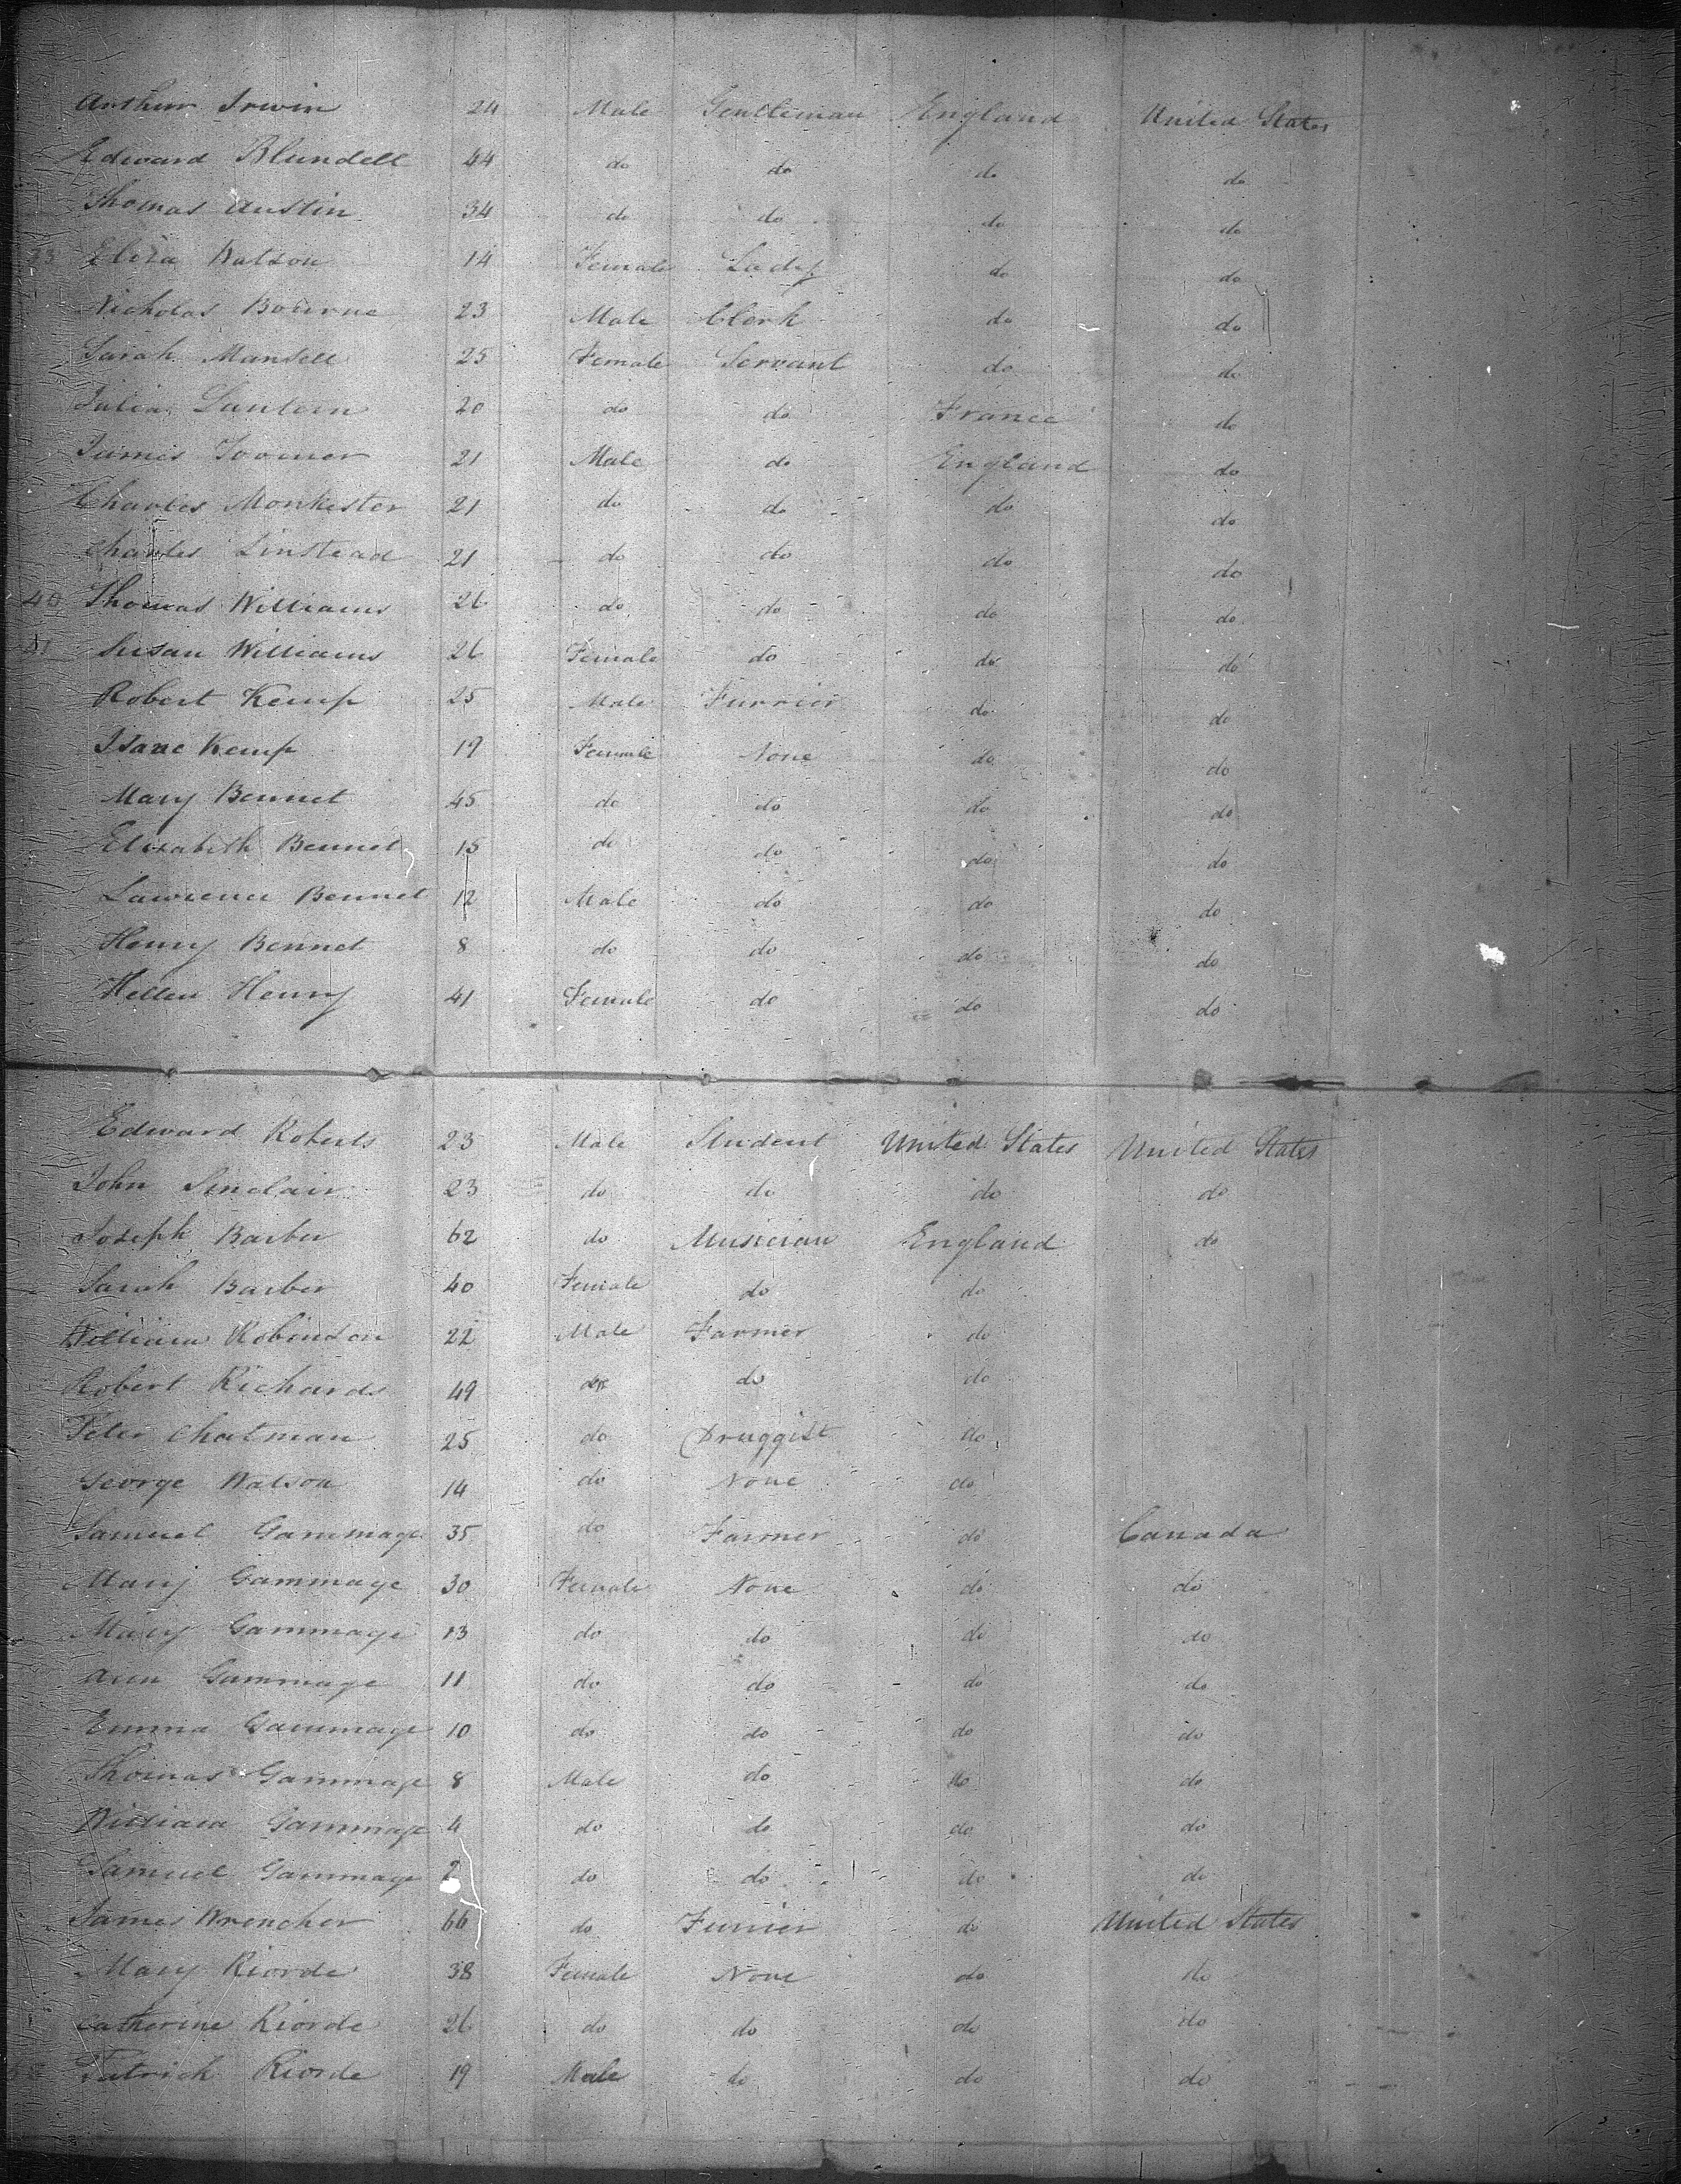 Arthur Irwin 24 Male Gentleman England United States
Edward Blundell 44 do do do do
Thomas Austin 34 do do do do
Eliza Watson 14 Female Lady do do
Nicholas Bourne 23 Male Clerk do do
Sarah Mansell 25 Female Servant do do
Julia 20 do do France do
James Toomer 21 Male do England do
Charles Monkester 21 do do do do
Charles Linstead 21 do do do do
40 Thomas Williams 26 do do do do
41 Susan Williams 26 Female do do do
Robert Kemp 25 Male Furrier do do
Isaac Kemp 19 Female None do do
Mary Bennet 45 do do do do
Elizabeth Bennet 15 do do do do
Lawrence Bennet 12 Male do do do
Henry Bennet 8 do do do do
Hellen Henry 41 Female do do do
Edward Roberts 23 Male Student United States United States
John Sinclair 23 do do do do
Joseph Barber 62 do Musician England do
Sarah Barber 40 Female do do
William Robinson 22 Male Farmer do
Robert Richards 49 do do do
Peter Chatman 25 do Druggist do
George Watson 14 do None do
Samuel Gammage 35 do Farmer do Canada
Mary Gammage 30 Female None do do
Mary Gammage 13 do do do do
Ann Gammage 11 do do do do
Emma Gammage 10 do do do do
Thomas Gammage 8 Male do do do
William Gammage 4 do do do do
Samuel Gammage 2 do do do do
James Wrencher 66 do Furrier do United States
Mary Riorde 38 Female None do do
Catherine Riorde 26 do do do do
Patrick Riorde 19 Male do do do